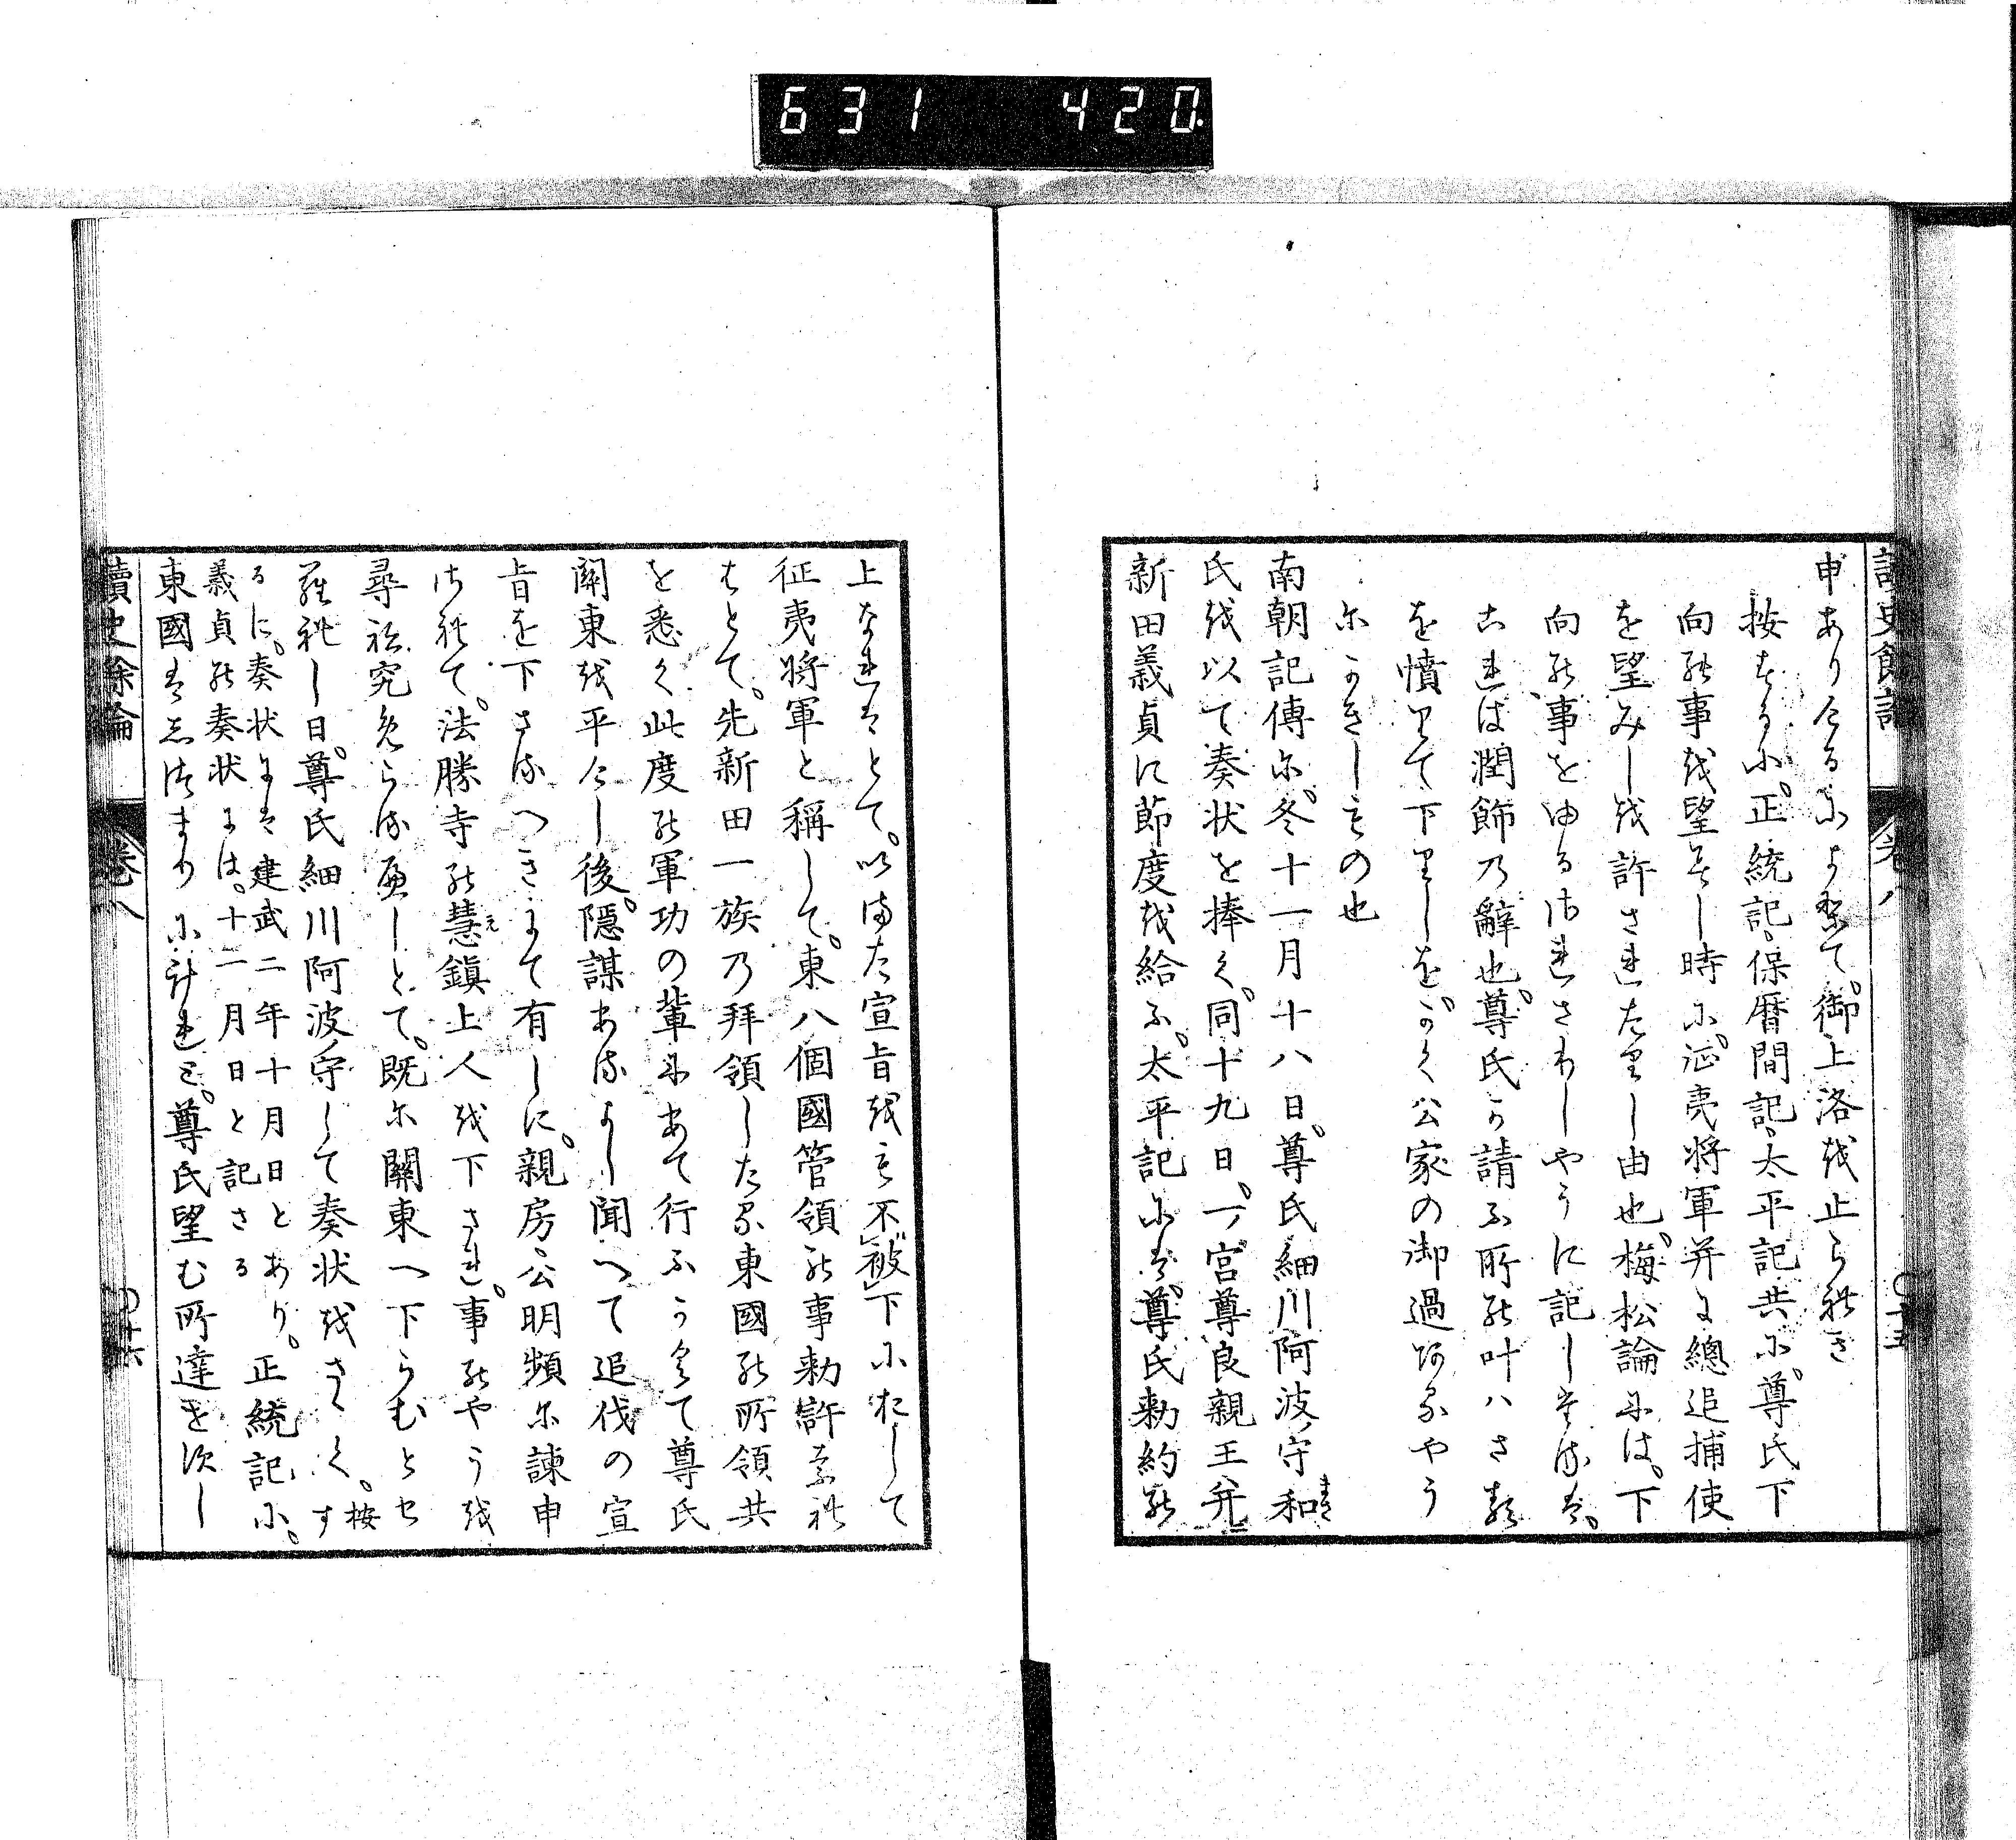 631 420
讀史餘論 卷八 〇十五
申ありけるによりて。御上洛を止られき
按するに。正統記。保暦間記。太平記共に。尊氏下
向の事を望みし時に。征夷將軍并に總追捕使
を望みしを許されたりし由也。梅松論には。下
向の事をゆるされさりしやうに記しぬるは。
これは潤飾の辭也。尊氏か請ふ所の叶ハさる
を憤りて下りしを。かく公家の御過あるやう
にかきしもの也
南朝記傳に。冬十一月十八日。尊氏細川阿波ノ守和
氏を以て奏状を捧く。同十九日。一ノ宮尊良親王并
新田義貞に節度を給ふ。太平記には。尊氏勅約の
上なれはとて。いまた宣旨をも不被下におして
征夷將軍と稱して。東八個國管領の事勅許なれ
はとて。先新田一族の拜領したる東國の所領共
を悉く此度の軍功の輩にあて行ふかくて尊氏
關東を平けし後。隱謀あるよし聞へて追伐の宣
旨を下さるへきにて有しに。親房公明頻に諫申
されて。法勝寺の慧鎭上人を下され。事のやうを
尋ね究めらるへしとて。既に關東へ下らむとせ
られし日。尊氏細川阿波ノ守して奏状をさゝく。按す
るに。奏状には建武二年十月日とあり。正統記に。
義貞の奏状には。十一月日と記さる
東國はしつまりに計れと。尊氏望む所達せすし
讀史餘論 卷八 〇十六